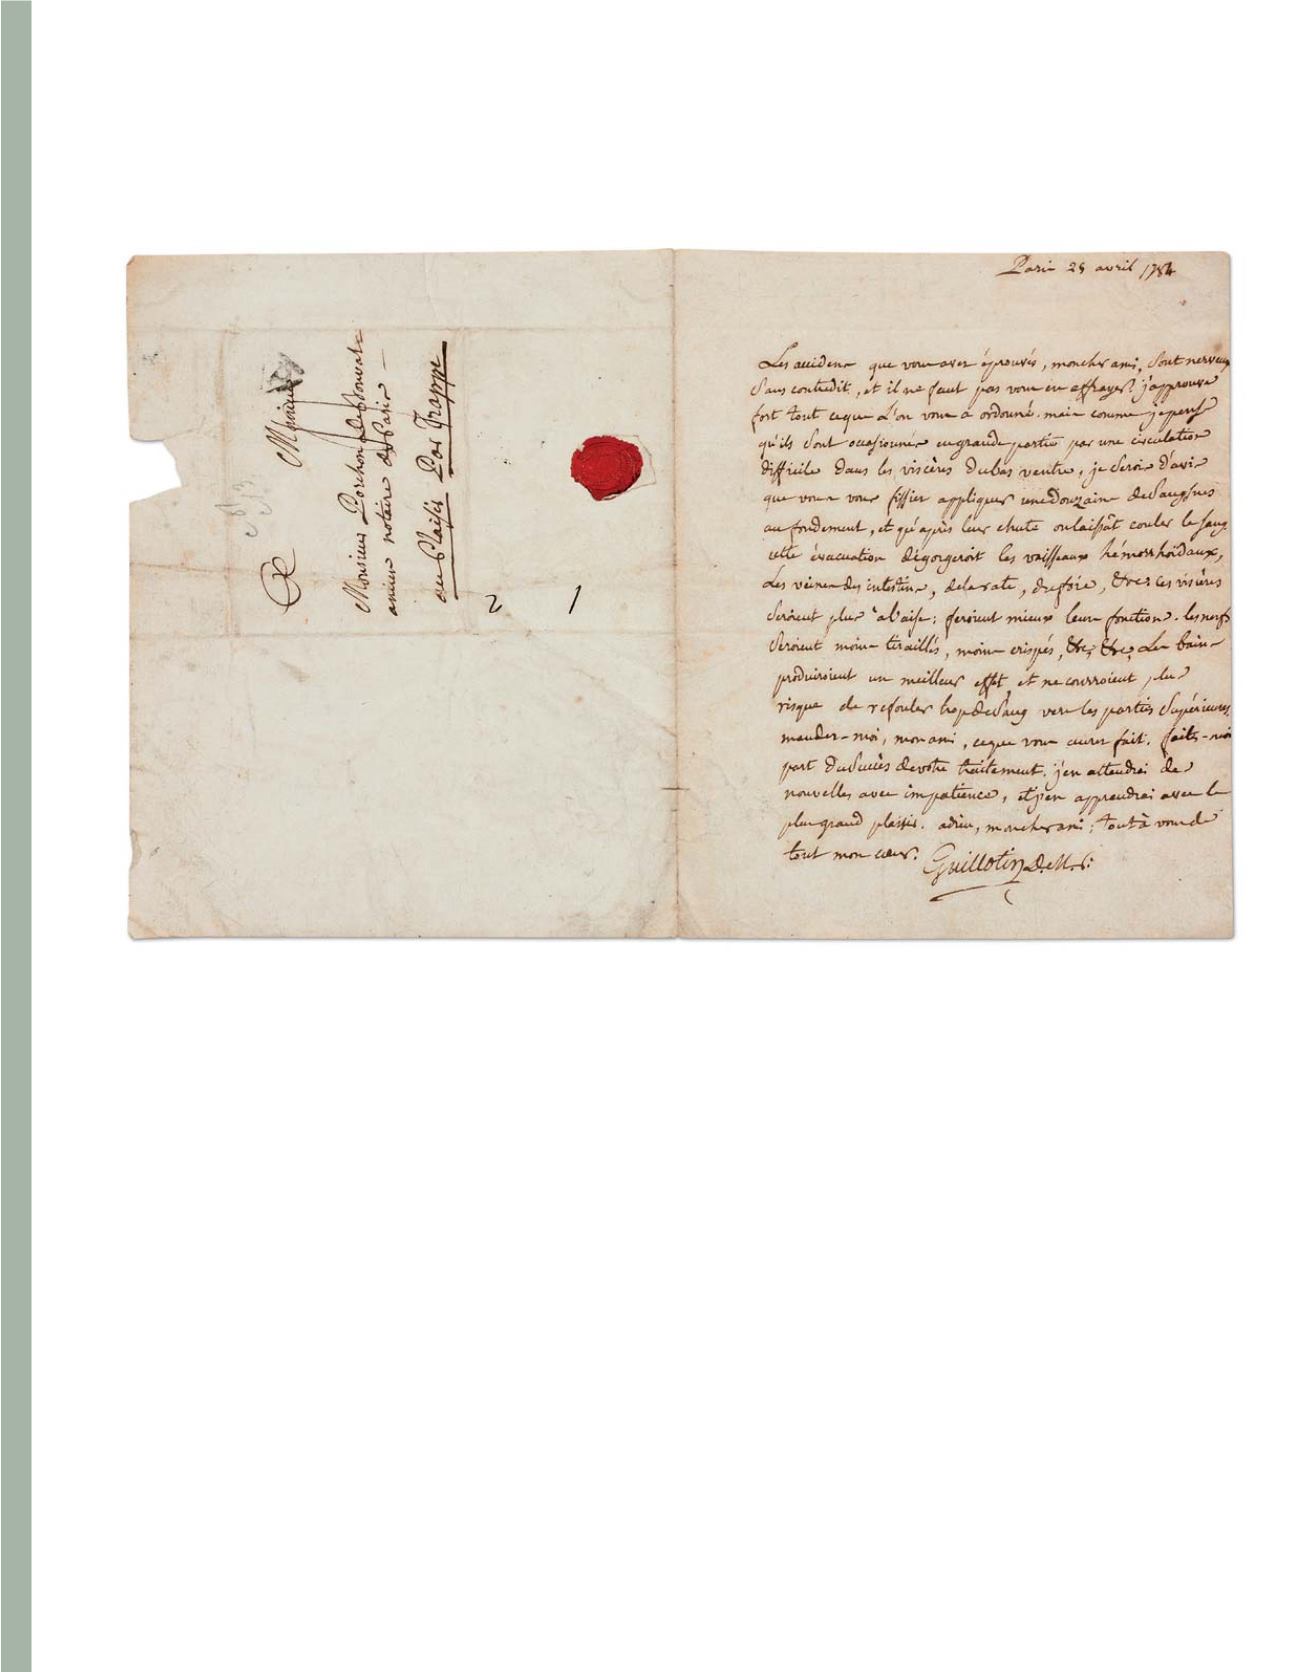 A
Monsieur
Monsieur Porchon de Bonvale
ancien notaire de Paris
au Plaisir Par Trappe
2 1
Paris 28 avril 1784
Les accidens que vous avez éprouvés, mon cher ami, sont nerveux
sans contredit, et il ne faut pas vous en effrayer. j'approuve
fort tout ce que l'on vous a ordonné. mais comme je pense
qu'ils sont occasionnés en grande partie par une circulation
difficile dans les viscères du bas ventre, je serois d'avis
que vous vous fissiez appliquer une douzaine de sangsues
au fondement, et qu'après leur chute on laissât couler le sang
cette évacuation dégorgeroit les vaisseaux hémorrhoïdaux,
les veines des intestins, de la rate, du foie, &c. ces viscères
seroient plus à l'aise; feroient mieux leurs fonctions. les nerfs
seroient moins tiraillés, moins crispés, &c, &c, Les bains
produiroient un meilleur effet, et ne courroient plus
risque de refouler trop de sang vers les parties supérieures.
mandez-moi, mon ami, ce que vous aurez fait. faites-moi
part du succès de votre traitement. j'en attendrai des
nouvelles avec impatience, et j'en apprendrai avec le
plus grand plaisir. adieu, mon cher ami; tout à vous de
tout mon cœur. Guillotin D.M.P.